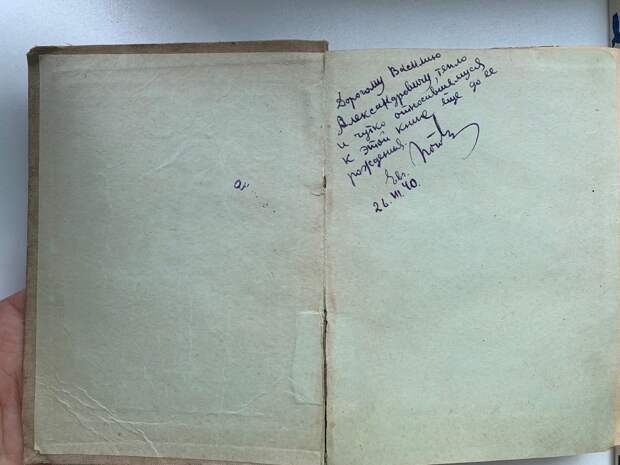 Дорогому Василию
Александровичу, тепло
и чутко относившемуся
к этой книге ещё до ее
рождения.
Евг.
26.VI.40.